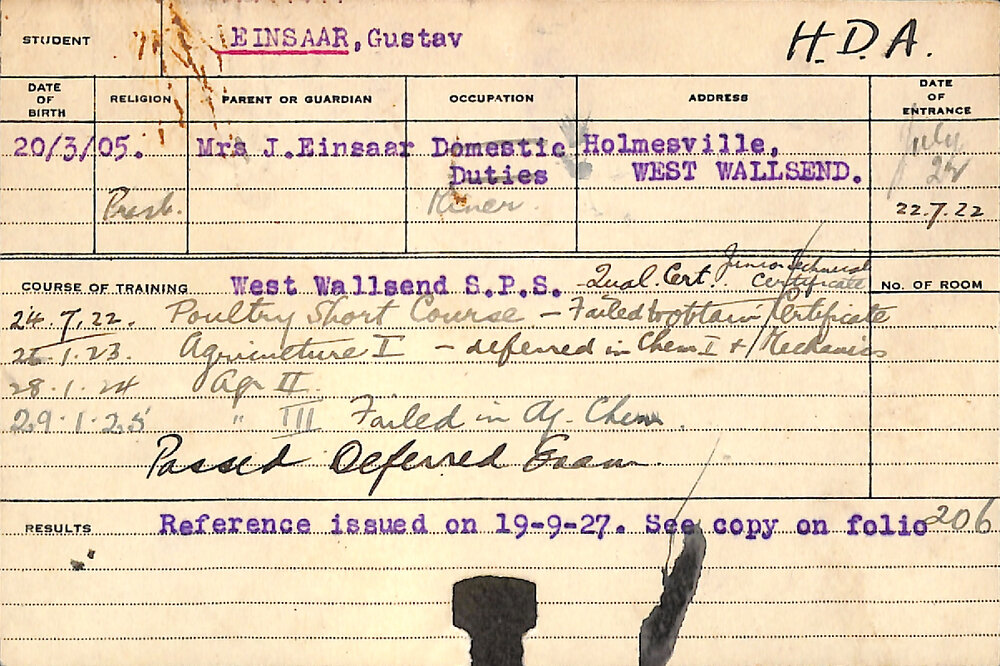 STUDENT EINSAAR, Gustav H.D.A.
DATE OF BIRTH RELIGION PARENT OR GUARDIAN OCCUPATION ADDRESS DATE OF ENTRANCE
20/3/05. Mrs J.Einsaar Domestic Holmesville, July
Duties WEST WALLSEND. 24
Presb. 22.7.22
COURSE OF TRAINING West Wallsend S.P.S. Qual. Cert. Junior Technical Certificate No. OF ROOM
24.7.22. Poultry Short Course - Failed to obtain Certificate
1.23. Agriculture I - deferred in Chem I + Mechanics
28.1.24 Agr II.
29.1.25 " III Failed in Ag. Chem.
Passed Deferred Exam.
RESULTS Reference issued on 19-9-27. See copy on folio 206